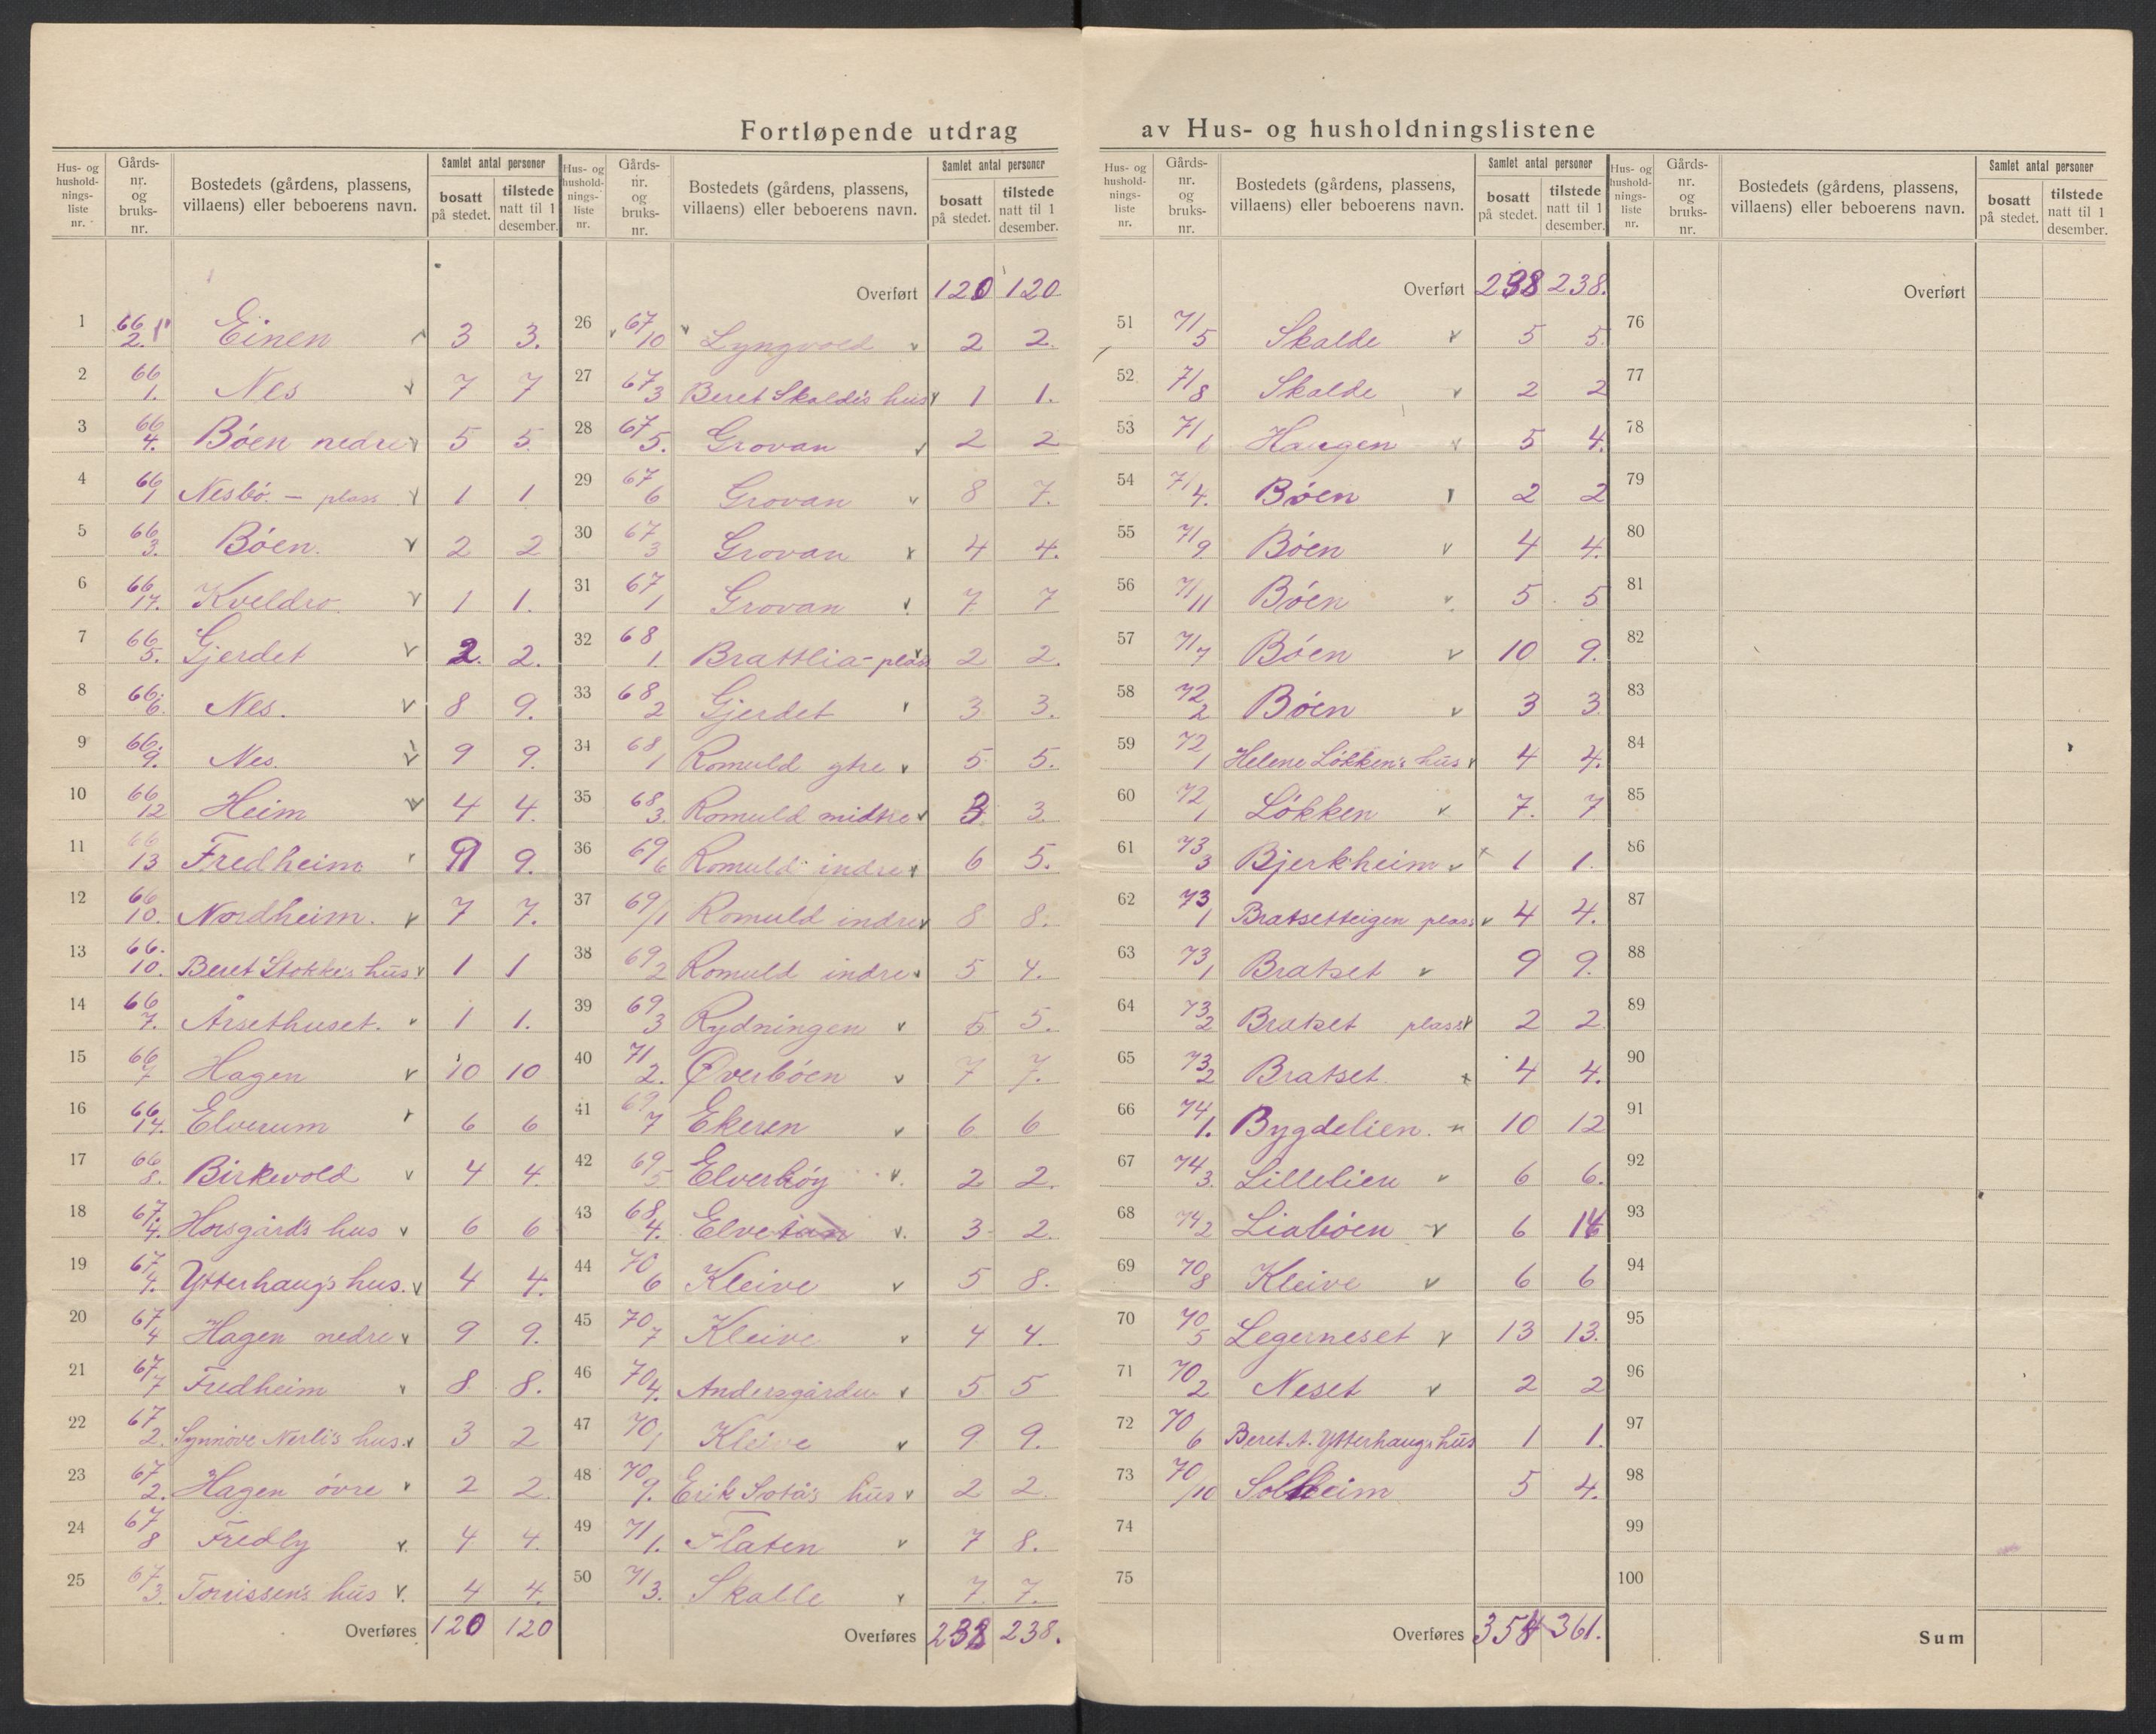 Fortløpende utdrag av Hus- og husholdningslistene
Hus- og husholdningsliste nr. Gårdsnr. og bruksnr. Bostedets (gårdens, plassens, villaens) eller beboerens navn. Samlet antal personer bosatt på stedet. tilstede natt til 1 desember.
1 66/2 Einen 3 3.
2 66/1. Nes 7 7
3 66/4. Bóen nedre 5 5
4 66/1 Nesbó. – plass 1 1
5 66/3. Bóen. 2 2
6 66/17. Kveldro. 1 1.
7 66/5. Gjerdet 2. 2.
8 66/6. Nes. 8 9.
9 66/9. Nes. 9 9.
10 66/12 Heim 4 4.
11 66/13 Fredheim 9 9.
12 66/10. Nordheim. 7 7.
13 66/10. Beret Stokke's hus 1 1
14 66/7. Årsethuset. 1 1.
15 66/7 Hagen 10 10
16 66/14. Elverum 6 6
17 66/8. Birkevold 4 4.
18 67/4. Horsgård's hus 6 6
19 67/4. Ytterhaug's hus. 4 4.
20 67/4 Hagen nedre 9 9.
21 67/7 Fredheim 8 8.
22 67/2. Synnóve Nerli's hus. 3 2
23 67/2. Hagen óvre 2 2
24 67/8 Fredly 4 4.
25 67/3. Torrissen's hus 4 4.
Overføres 120 120
Hus- og husholdningsliste nr. Gårdsnr. og bruksnr. Bostedets (gårdens, plassens, villaens) eller beboerens navn. Samlet antal personer bosatt på stedet. tilstede natt til 1 desember.
Overført 120 120
26 67/10 Lyngvold 2 2.
27 67/3 Beret Skalde's hus 1 1.
28 67/5. Grovan 2 2
29 67/6 Grovan 8 7.
30 67/3 Grovan 4 4.
31 67/1 Grovan 7 7
32 68/1. Brattlia-plass 2 2.
33 68/2 Gjerdet 3 3.
34 68/1 Romuld ytre 5 5.
35 68/3. Romuld midtre 3 3.
36 69/6 Romuld indre 6 5.
37 69/1 Romuld indre 8 8.
38 69/2 Romuld indre 5 4.
39 69/3 Rydningen 5 5.
40 71/2. Øverbóen 7 7.
41 69/7 Ekeren 6 6
42 69/5 Elverhóy 2 2.
43 68/4. 3 2.
44 70/6 Kleive 5 8.
45 70/7 Kleive 4 4.
46 70/4. Andersgården 5 5
47 70/1 Kleive 9 9.
48 70/9. Erik hus 2 2
49 71/1. Flaten 7 8.
50 71/3. Skalle 7 7.
Overføres 238 238.
Hus- og husholdningsliste nr. Gårdsnr. og bruksnr. Bostedets (gårdens, plassens, villaens) eller beboerens navn. Samlet antal personer bosatt på stedet. tilstede natt til 1 desember.
Overført 238 238.
51 71/5 Skalde 5 5
52 71/8 Skalde 2 2
53 71/1 Haugen 5 4.
54 71/4. Bóen 2 2
55 71/9 Bóen 4 4.
56 71/11 Bóen 5 5
57 71/7 Bóen 10 9.
58 72/2 Bóen 3 3
59 72/1 Helene Lókken's hus 4 4.
60 72/1 Lókken 7. 7
61 73/3 Bjerkheim 1 1.
62 73/1 Bratsetteigen plass 4 4.
63 73/1 Bratset 9 9.
64 73/2 Bratset plass 2 2
65 73/2 Bratset. 4 4.
66 74/1. Bygdelien. 10 12
67 74/3. Lillelien 6 6.
68 74/2 Liabóen 6 16
69 70/8 Kleive 6 6
70 70/5 Legerneset 13 13.
71 70/2 Neset 2 2
72 70/6 Beret A. Ytterhaug's hus 1 1.
73 70/10 Solheim 5 4.
74
75
Overføres 354 361.
Hus- og husholdningsliste nr. Gårdsnr. og bruksnr. Bostedets (gårdens, plassens, villaens) eller beboerens navn. Samlet antal personer bosatt på stedet. tilstede natt til 1 desember.
Overført
76
77
78
79
80
81
82
83
84
85
86
87
88
89
90
91
92
93
94
95
96
97
98
99
100
Sum